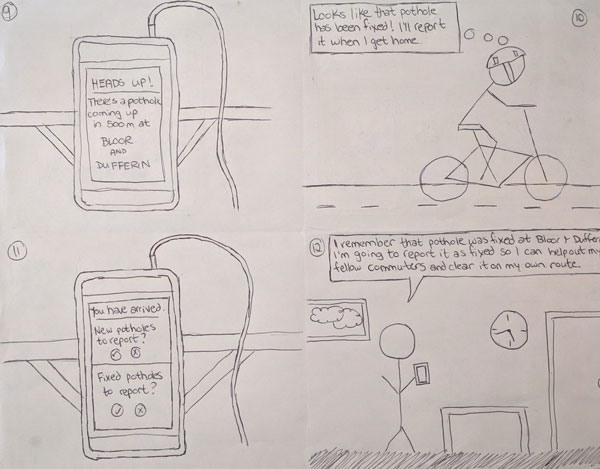 9
HEADS UP!
There's a pothole
coming up
in 500m at
BLOOR
AND
DUFFERIN
10
Looks like that pothole
has been fixed! I'll report
it when I get home.
11
You have arrived.
New potholes
to report?
Fixed potholes
to report?
12
I remember that pothole was fixed at Bloor + Dufferin
I'm going to report it as fixed so I can help out my
fellow commuters and clear it on my own route.